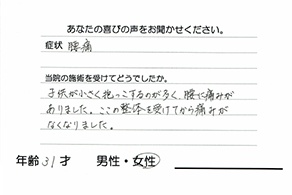 あなたの喜びの声をお聞かせください。
症状 腰痛
当院の施術を受けてどうでしたか。
子供が小さく抱っこするのが多く、腰に痛みが
ありました。ここの整体を受けてから痛みが
なくなりました。
年齢 31才 男性・女性